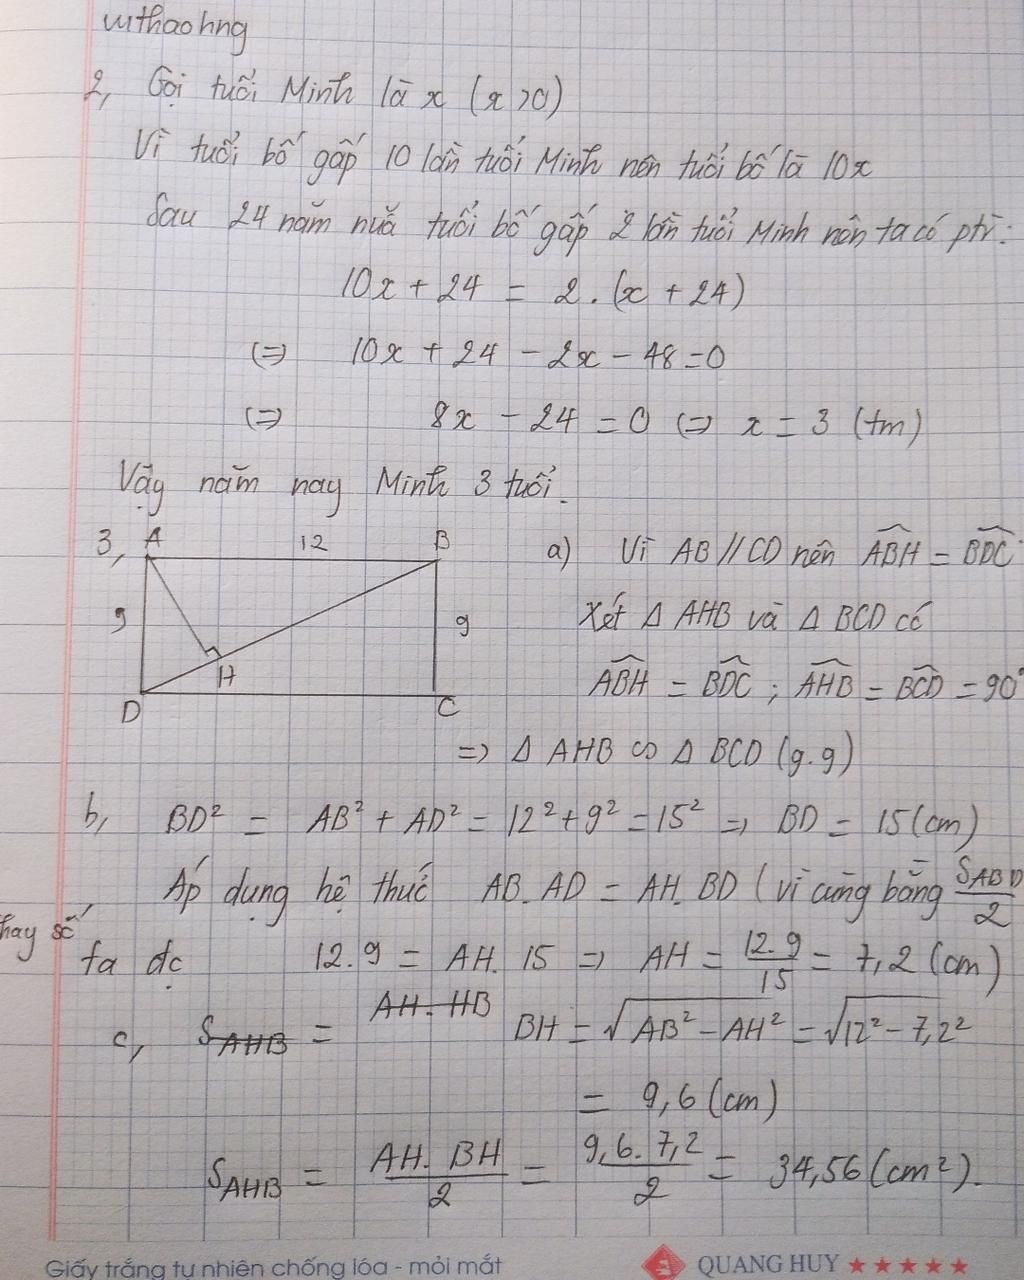 vuthaohng
2, Gọi tuổi Minh là x (x>0)
Vì tuổi bố gấp 10 lần tuổi Minh nên tuổi bố là 10x
Sau 24 năm nữa tuổi bố gấp 2 lần tuổi Minh nên ta có ptr:
10x + 24 = 2.(x + 24)
(=) 10x + 24 - 2x - 48 = 0
(=) 8x - 24 = 0 (=) x = 3 (tm)
Vậy năm nay Minh 3 tuổi.
3, A 12 B
9 9
H
D C
a) Vì AB // CD nên \widehat{ABH} = \widehat{BDC}
Xét Δ AHB và Δ BCD có
\widehat{ABH} = \widehat{BDC} ; \widehat{AHB} = \widehat{BCD} = 90°
=> Δ AHB ∽ Δ BCD (g.g)
b, BD² = AB² + AD² = 12² + 9² = 15² => BD = 15 (cm)
Áp dụng hệ thức AB. AD = AH. BD (vì cùng bằng \frac{S_{ABD}}{2}
hay số
ta đc 12.9 = AH. 15 => AH = \frac{12.9}{15} = 7,2 (cm)
c, S_{AHB} = AH. HB BH = \sqrt{AB² - AH²} = \sqrt{12² - 7,2²}
= 9,6 (cm)
S_{AHB} = \frac{AH. BH}{2} = \frac{9,6. 7,2}{2} = 34,56 (cm²).
Giấy trắng tự nhiên chống lóa - mỏi mắt QUANG HUY ★★★★★